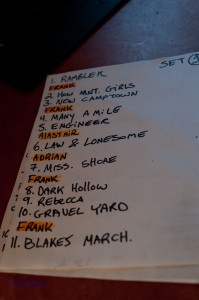 1. RAMBLER SET 3
FRANK
2. HOW MNT. GIRLS
3. NEW CAMPTOWN
FRANK
4. MANY A MILE
5. ENGINEER
ALASTAIR
6. LAW & LONESOME
ADRIAN
7. MISS. SHORE
FRANK
8. DARK HOLLOW
9. REBECCA
10. GRAVEL YARD
FRANK
11. BLAKES MARCH.